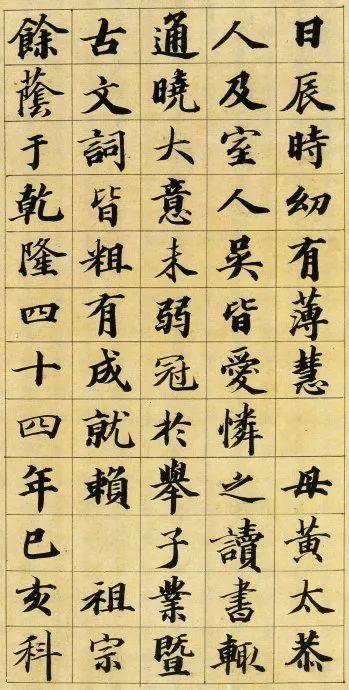 日辰時幼有薄慧 母黃太恭
人及室人吳皆愛憐之讀書輒
通曉大意未弱冠於舉子業暨
古文詞皆粗有成就賴 祖宗
餘蔭于乾隆四十四年巳亥科